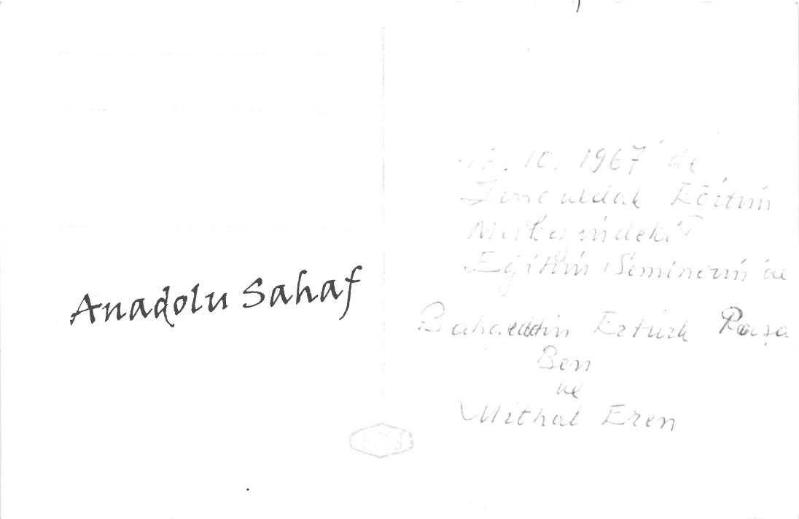 Anadolu Sahaf
10. 1967 de
Zonguldak Eğitim
Merkezindeki
Eğitim Seminerinde
Bahaeddin Ertürk Paşa
Ben
ve
Mithat Eren